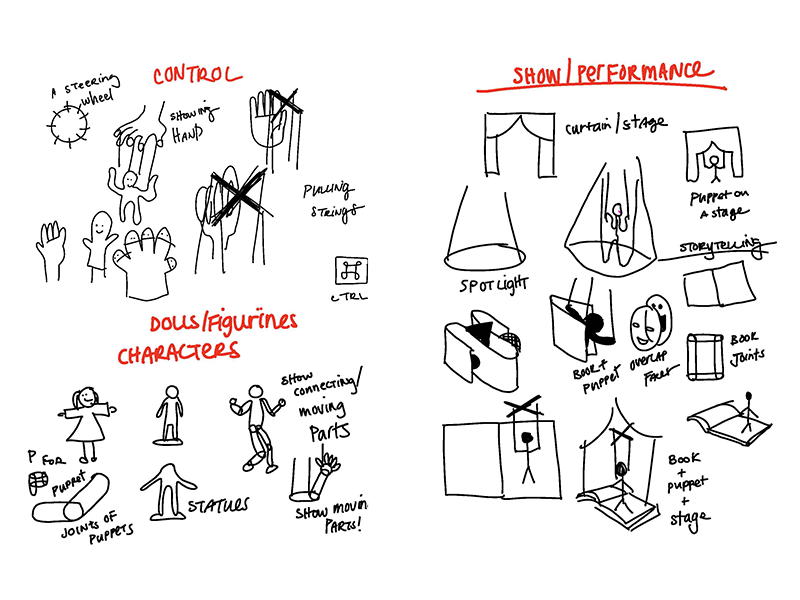 CONTROL
A STEERING
wheel
SHOWING
HAND
PULLING
STRINGS
CTRL
DOLLS/Figurines
CHARACTERS
SHOW CONNECTING/
MOVING
PARTS
P FOR
PUPPET
JOINTS OF
PUPPETS
STATUES
SHOW MOVIN
PARTS!
SHOW/PERFORMANCE
CURTAIN/STAGE
PUPPET ON
A STAGE
SPOTLIGHT
STORYTELLING
BOOK+
PUPPET
OVERLAP
FACES
BOOK
JOINTS
BOOK
+
PUPPET
+
STAGE